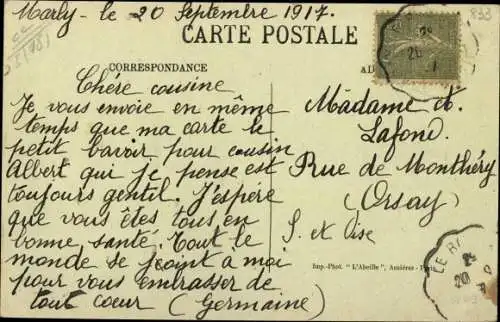 Marly - le 20 Septembre 1917.
CARTE POSTALE
CORRESPONDANCE
Chére cousine
Je vous envoie en même
temps que ma carte le
petit bavoir pour cousin
Albert qui je pense est
toujours gentil. J'espére
que vous êtes tous en
bonne santé. Tout le
monde se joint a moi
pour vous embrasser de
tout coeur (Germaine)
Madame A.
Lafond.
Rue de Monthéry
(Orsay)
S. et Oise
Imp.-Phot. "L'Abeille", Asnières - Paris
20
LE
20